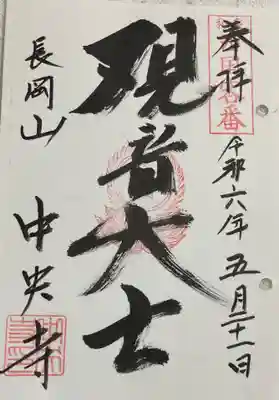 奉拝
令和六年五月二十一日
観音大士
長岡山
中央寺